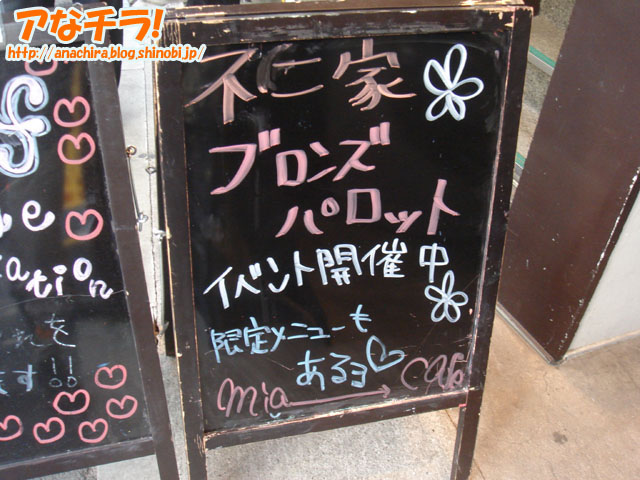 アなチラ!
http://anachira.blog.shinobi.jp/
不二家
ブロンズ
パロット
イベント開催中
限定メニューも
あるヨ
mia → cafe
e
ation
を
ます!!